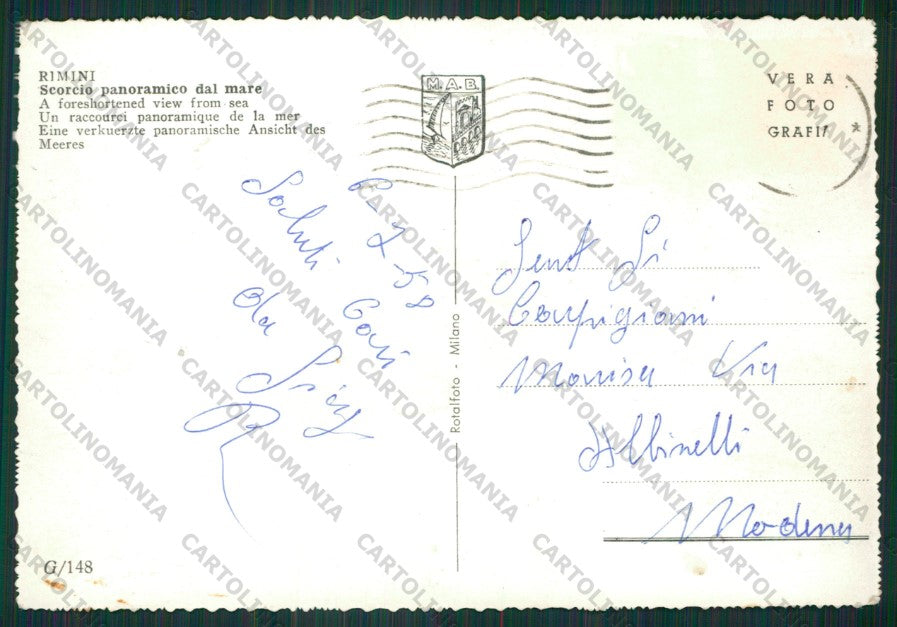 RIMINI
Scorcio panoramico dal mare
A foreshortened view from sea
Un raccourci panoramique de la mer
Eine verkuerzte panoramische Ansicht des
Meeres
M.A.B.
VERA
FOTO
GRAFIA
6-7-58
Saluti Cari
da
R
Rotalfoto - Milano
Gent
Campigiani
Marisa Via
Albinelli
Modena
G/148
CARTOLINOMANIA